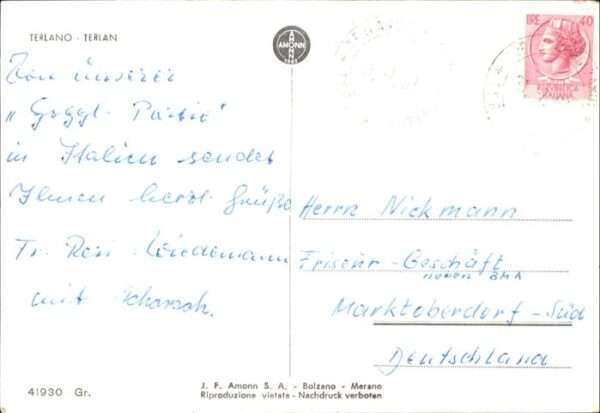 TERLANO - TERLAN
AMONN
AMONN
1802
LIRE 40
Von unserer
in Italien sendet
Ihnen herzl. Grüße
Fr. Resi
mit Schorsch.
Herrn Nickmann
Friseur-Geschäft
neben BMA
Marktoberdorf-Süd
Deutschland
41930 Gr.
J. F. Amonn S. A. - Bolzano - Merano
Riproduzione vietata - Nachdruck verboten